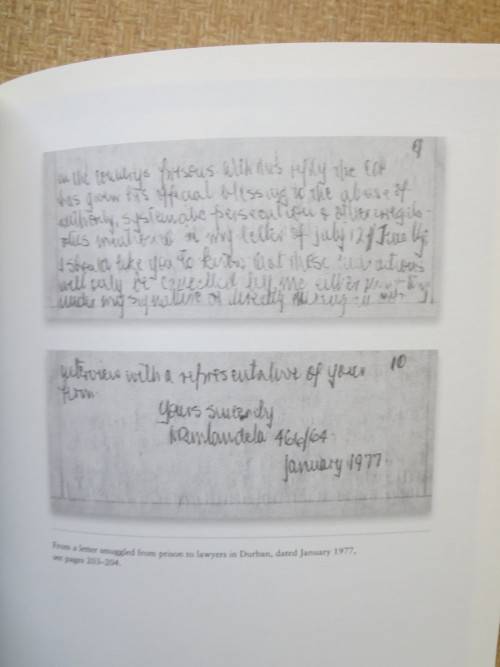 9
in the country's prisons. With his reply the COP
has given his official blessing to the abuse of
authority, systematic persecution & other irregula-
rities mentioned in my letter of July 12
I should like you to know that these instructions
will only be cancelled by me either
under my signature or directly during
10
interview with a representative of your
firm.
Yours sincerely
NRMandela 466/64
January 1977.
From a letter smuggled from prison to lawyers in Durban, dated January 1977,
see pages 203–204.